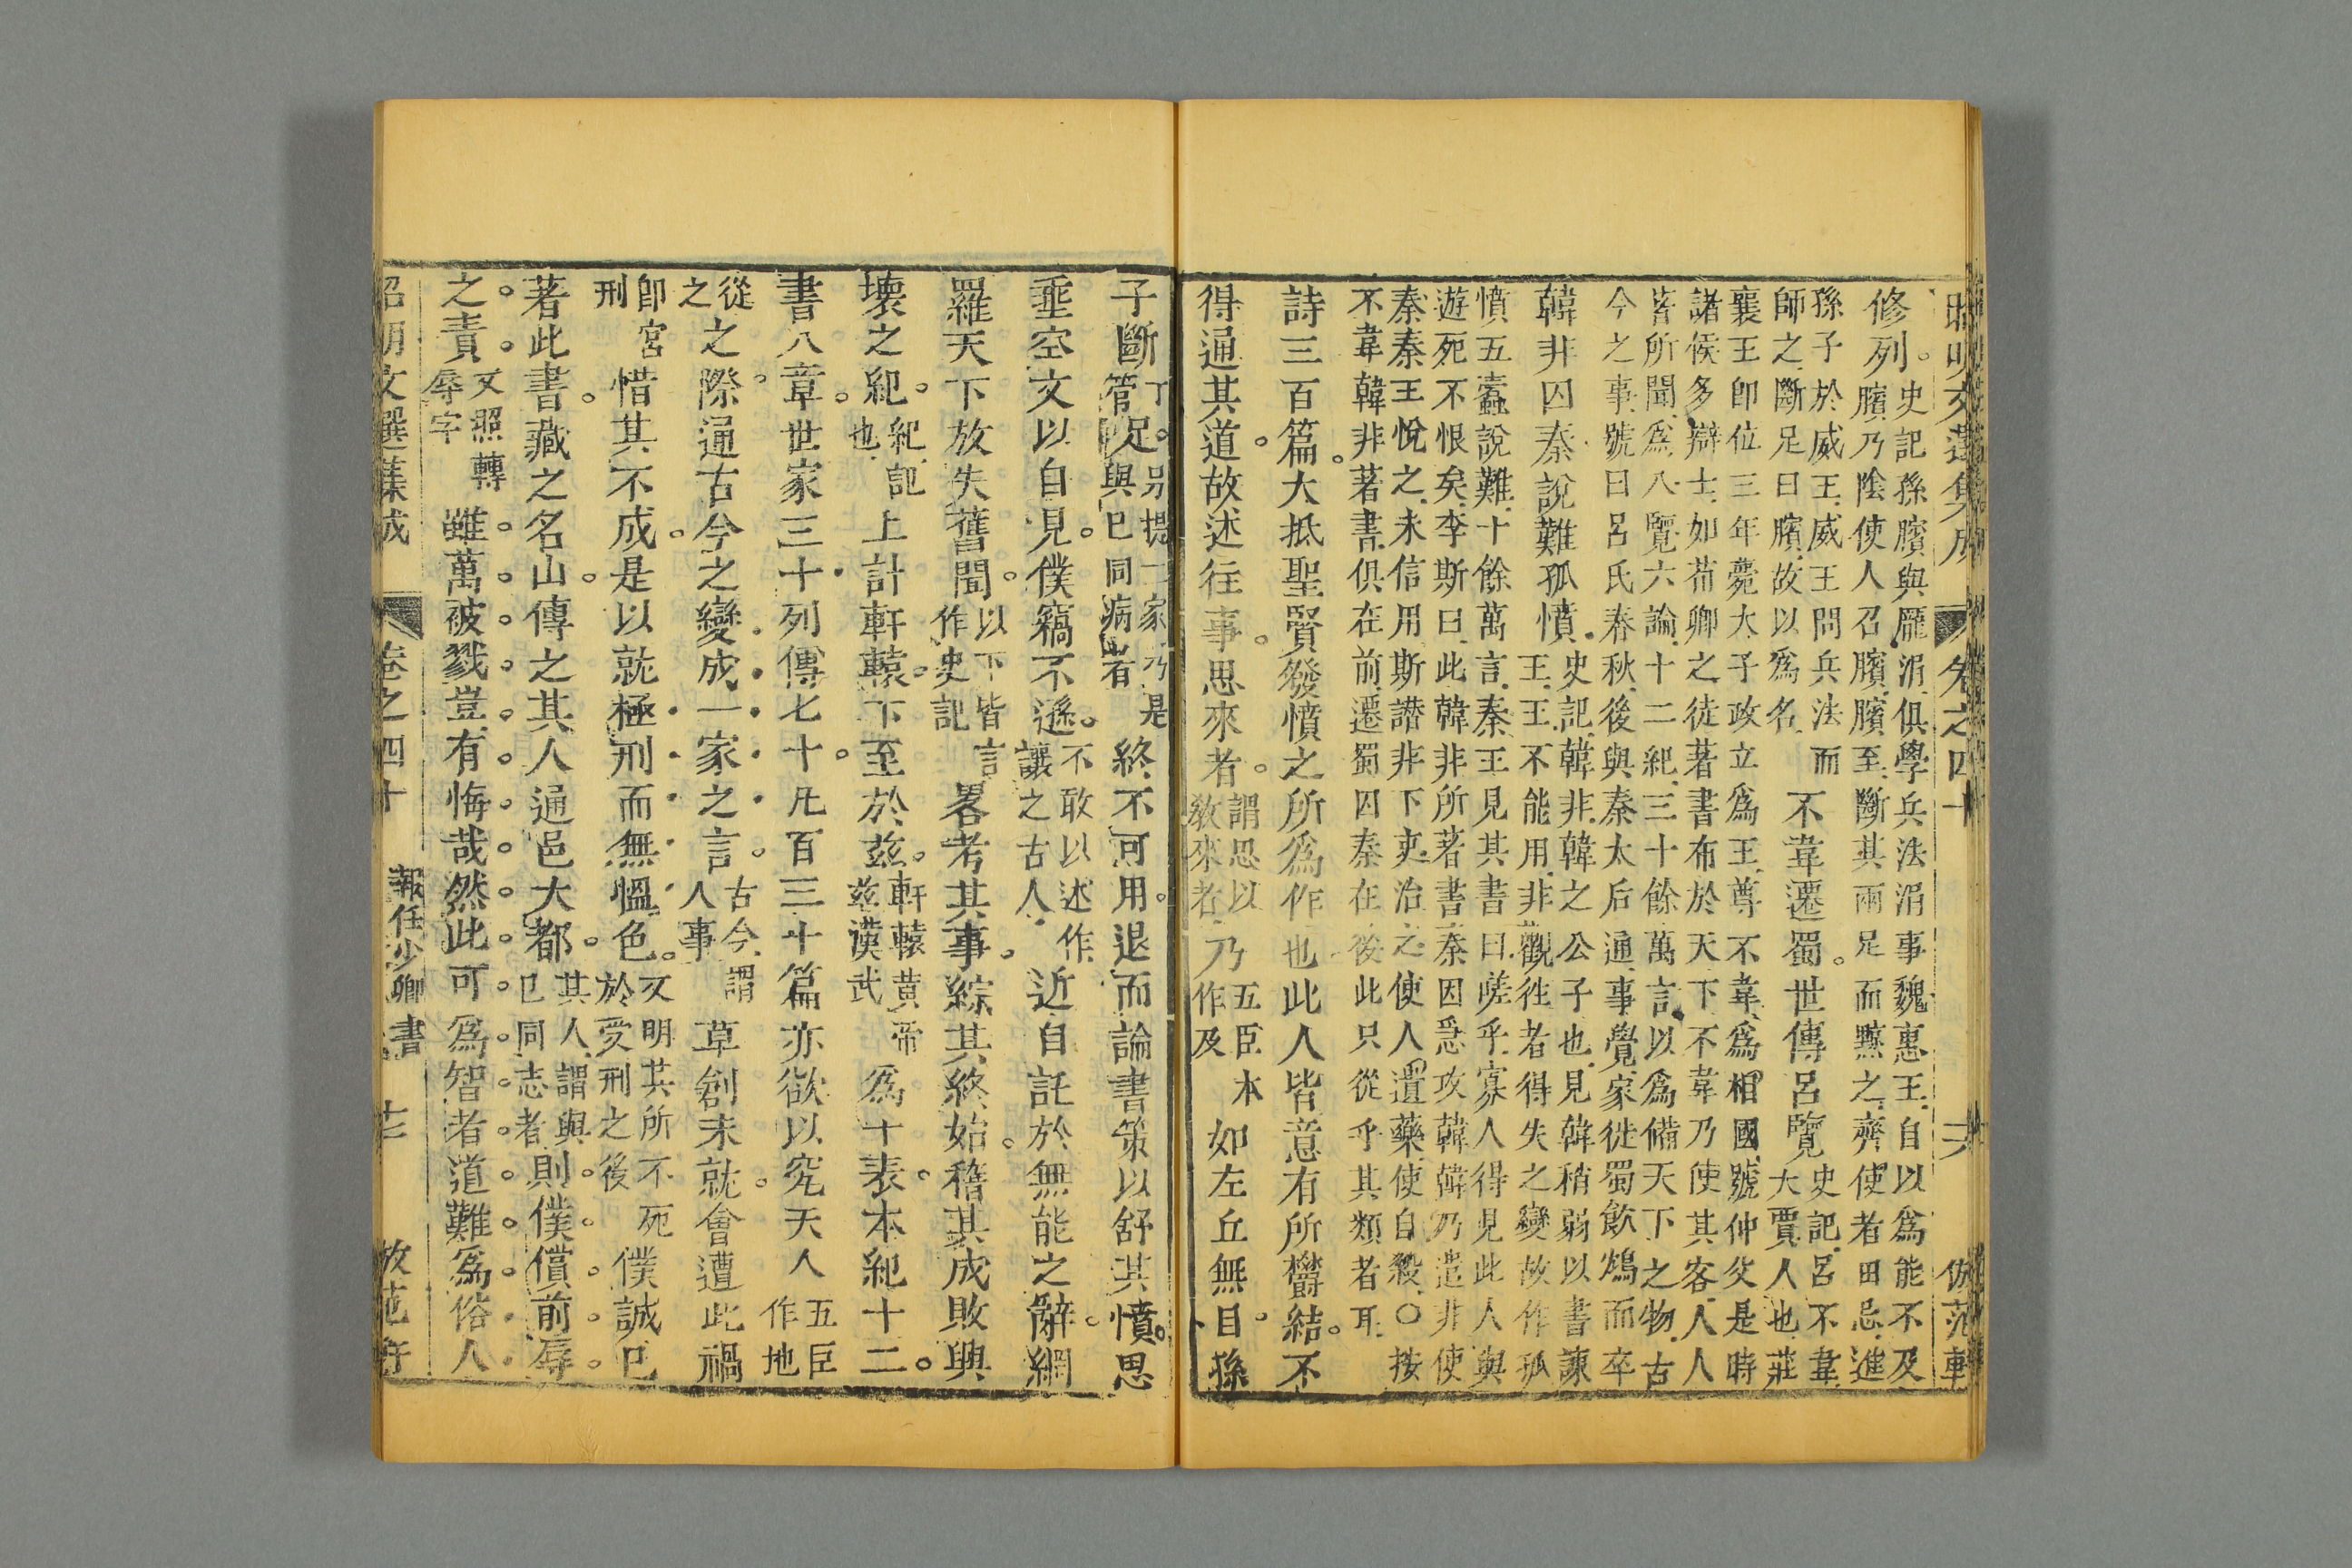 昭明文選集成 卷之四十 六 仿范軒
修列。史記孫臏與龐涓俱學兵法涓事魏惠王自以爲能不及
臏乃陰使人召臏臏至斷其兩足而黥之齊使者田忌進
孫子於威王威王問兵法而
師之斷足曰臏故以爲名
不韋遷蜀。世傳呂覽史記呂不韋
大賈人也莊
襄王卽位三年薨大子政立爲王尊不韋爲相國號仲父是時
諸侯多辯士如荀卿之徒著書布於天下不韋乃使其客人人
著所聞爲八覽六論十二紀三十餘萬言以爲備天下之物古
今之事號曰呂氏春秋後與秦太后通事覺家徙蜀飲鴆而卒
韓非囚秦說難孤憤史記韓非韓之公子也見韓稍弱以書諫
王王不能用非觀徃者得失之變故作孤
憤五蠹說難十餘萬言秦王見其書曰嗟乎寡人得見此人與
遊死不恨矣李斯曰此韓非所著書秦因急攻韓韓乃遣非使
秦秦王悅之未信用斯譖非下吏治之使人遺藥使自殺○按
不韋韓非著書俱在前遷蜀囚秦在後此只從乎其類者耳
詩三百篇。大抵聖賢發憤之所爲作也此人皆意有所鬱結。不
得通其道。故述往事。思來者。謂思以
教來者乃五臣本
作及如左丘無目。孫
子斷足。別提二家乃是
與已同病者終不可用。退而論書策以舒其憤。思
垂空文以自見。僕竊不遜。不敢以述作
讓之古人近自託於無能之辭。網
羅天下放失舊聞。以下皆言
作史記畧考其事。綜其終始。稽其成敗興
壞之紀。紀記
也上計軒轅。下至於茲。軒轅黃帝
茲漢武爲十表。本紀十二。
書八章。世家三十列傳七十。凡百三十篇亦欲以究天人五臣
作地
從
之之際。通古今之變成一家之言。古今謂
人事草創未就。會遭此禍
卽宮
刑惜其不成。是以就極刑而無慍色。又明其所不死
於受刑之後僕誠已
著此書。藏之名山。傳之其人通邑大都。其人謂與
已同志者則僕償前辱
之責。又照轉
辱字雖萬被戮豈有悔哉然此可爲智者道難爲俗人
昭明文選集成 卷之四十 報任少卿書 十二 仿范軒